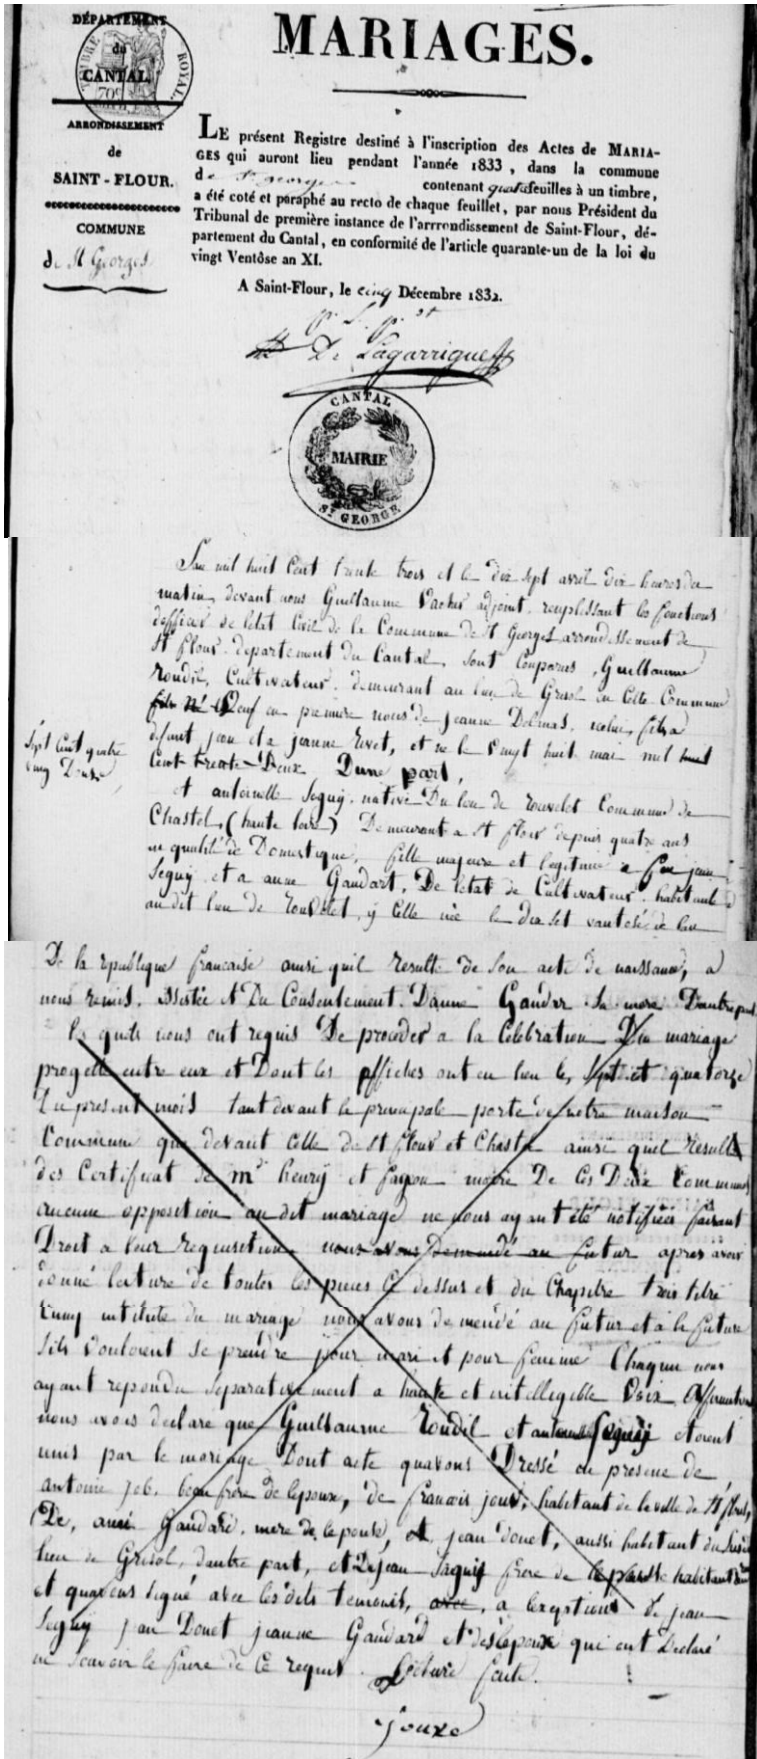 DÉPARTEMENT
du
CANTAL.
TIMBRE ROYAL
70c
ARRONDISSEMENT
de
SAINT-FLOUR.
COMMUNE
de St Georges
MARIAGES.
LE présent Registre destiné à l'inscription des Actes de MARIA-
GES qui auront lieu pendant l'année 1833, dans la commune
de St georges contenant quatre feuilles à un timbre,
a été coté et paraphé au recto de chaque feuillet, par nous Président du
Tribunal de première instance de l'arrrondissement de Saint-Flour, dé-
partement du Cantal, en conformité de l'article quarante-un de la loi du
vingt Ventôse an XI.
A Saint-Flour, le cinq Décembre 1832.
De Lagarrigue
CANTAL
MAIRIE
St GEORGE
L'an mil huit Cent trente trois et le dix sept avril dix heures du
matin, devant nous Guillaume Vacher adjoint, remplissant les fonctions
d'officier de letat Civil de la Commune de St Georges arrondissement de
St flour departement du Cantal, sont Comparus, Guillaume
Roudil, Cultivateur, demeurant au lieu de Grisol en Cette Commune
Veuf en premiere noces de Jeanne Delmas, fils a
defunt jean et a jeanne Rivet, et ne le vingt huit mai mil huit
Cent trente Deux Dune part,
Sept Cent quatre
vingt Douze
et antoinette Seguy, native Du lieu de Rouvelet Commune de
Chastel, (haute loire) Demeurant a St flour depuis quatre ans
en qualité de Domestique, fille majeure et legitime a feu jean
Seguy et a anne Gandart, De letat de Cultivateur, habitante
au dit lieu de Rouvelet, y Celle née le dix set vantose de lan
De la republique francaise ainsi quil Resulte de son acte de naissance, a
nous remis. assistée et Du Consentement Danne Gandar Sa mere Dautre part
les quels nous ont requis De proceder a la Celebration Du mariage
progetté entre eux et Dont les affiches ont eu lieu les sept et quatorze
Du present mois tant devant la principale porte de notre maison
Commune que devant Celle de St flour et Chastel ainsi quil Resulte
des Certificat de mr henry et fagon maire De Ces Deux Communes
aucune opposition au dit mariage ne nous ayant été notifiées faisant
Droit a leur requisition nous avons Demandé au futur apres avoir
donné lecture de toutes les pieces Ci dessus et du Chapitre trois titre
Cinq intitulé du mariage nous avons demendé au futur et a la future
Sils Vouloient se prendre pour mari et pour femme Chaqun nous
ayant repondu separativement a haute et intellegible Voix Affirmative
nous avons declare que Guillaume Roudil et antoinette Seguy etoient
unis par le mariage Dont acte quavons Dressé en presence de
antoine job, beau frere de lepoux, de francois jouve, habitant de la ville de St flour,
De, anne Gandard, mere de lepouse, et jean Donet, aussi habitant du susdit
lieu de Grisol, dautre part, et De jean Seguy frere de lepouse habitant
et quavons signé avec les dits temoins, avec, a lexeptions de jean
Seguy jean Donet jeanne Gandard et des lepoux qui ont Declaré
ne scavoir le faire de Ce requis. Lecture faite.
Jouve